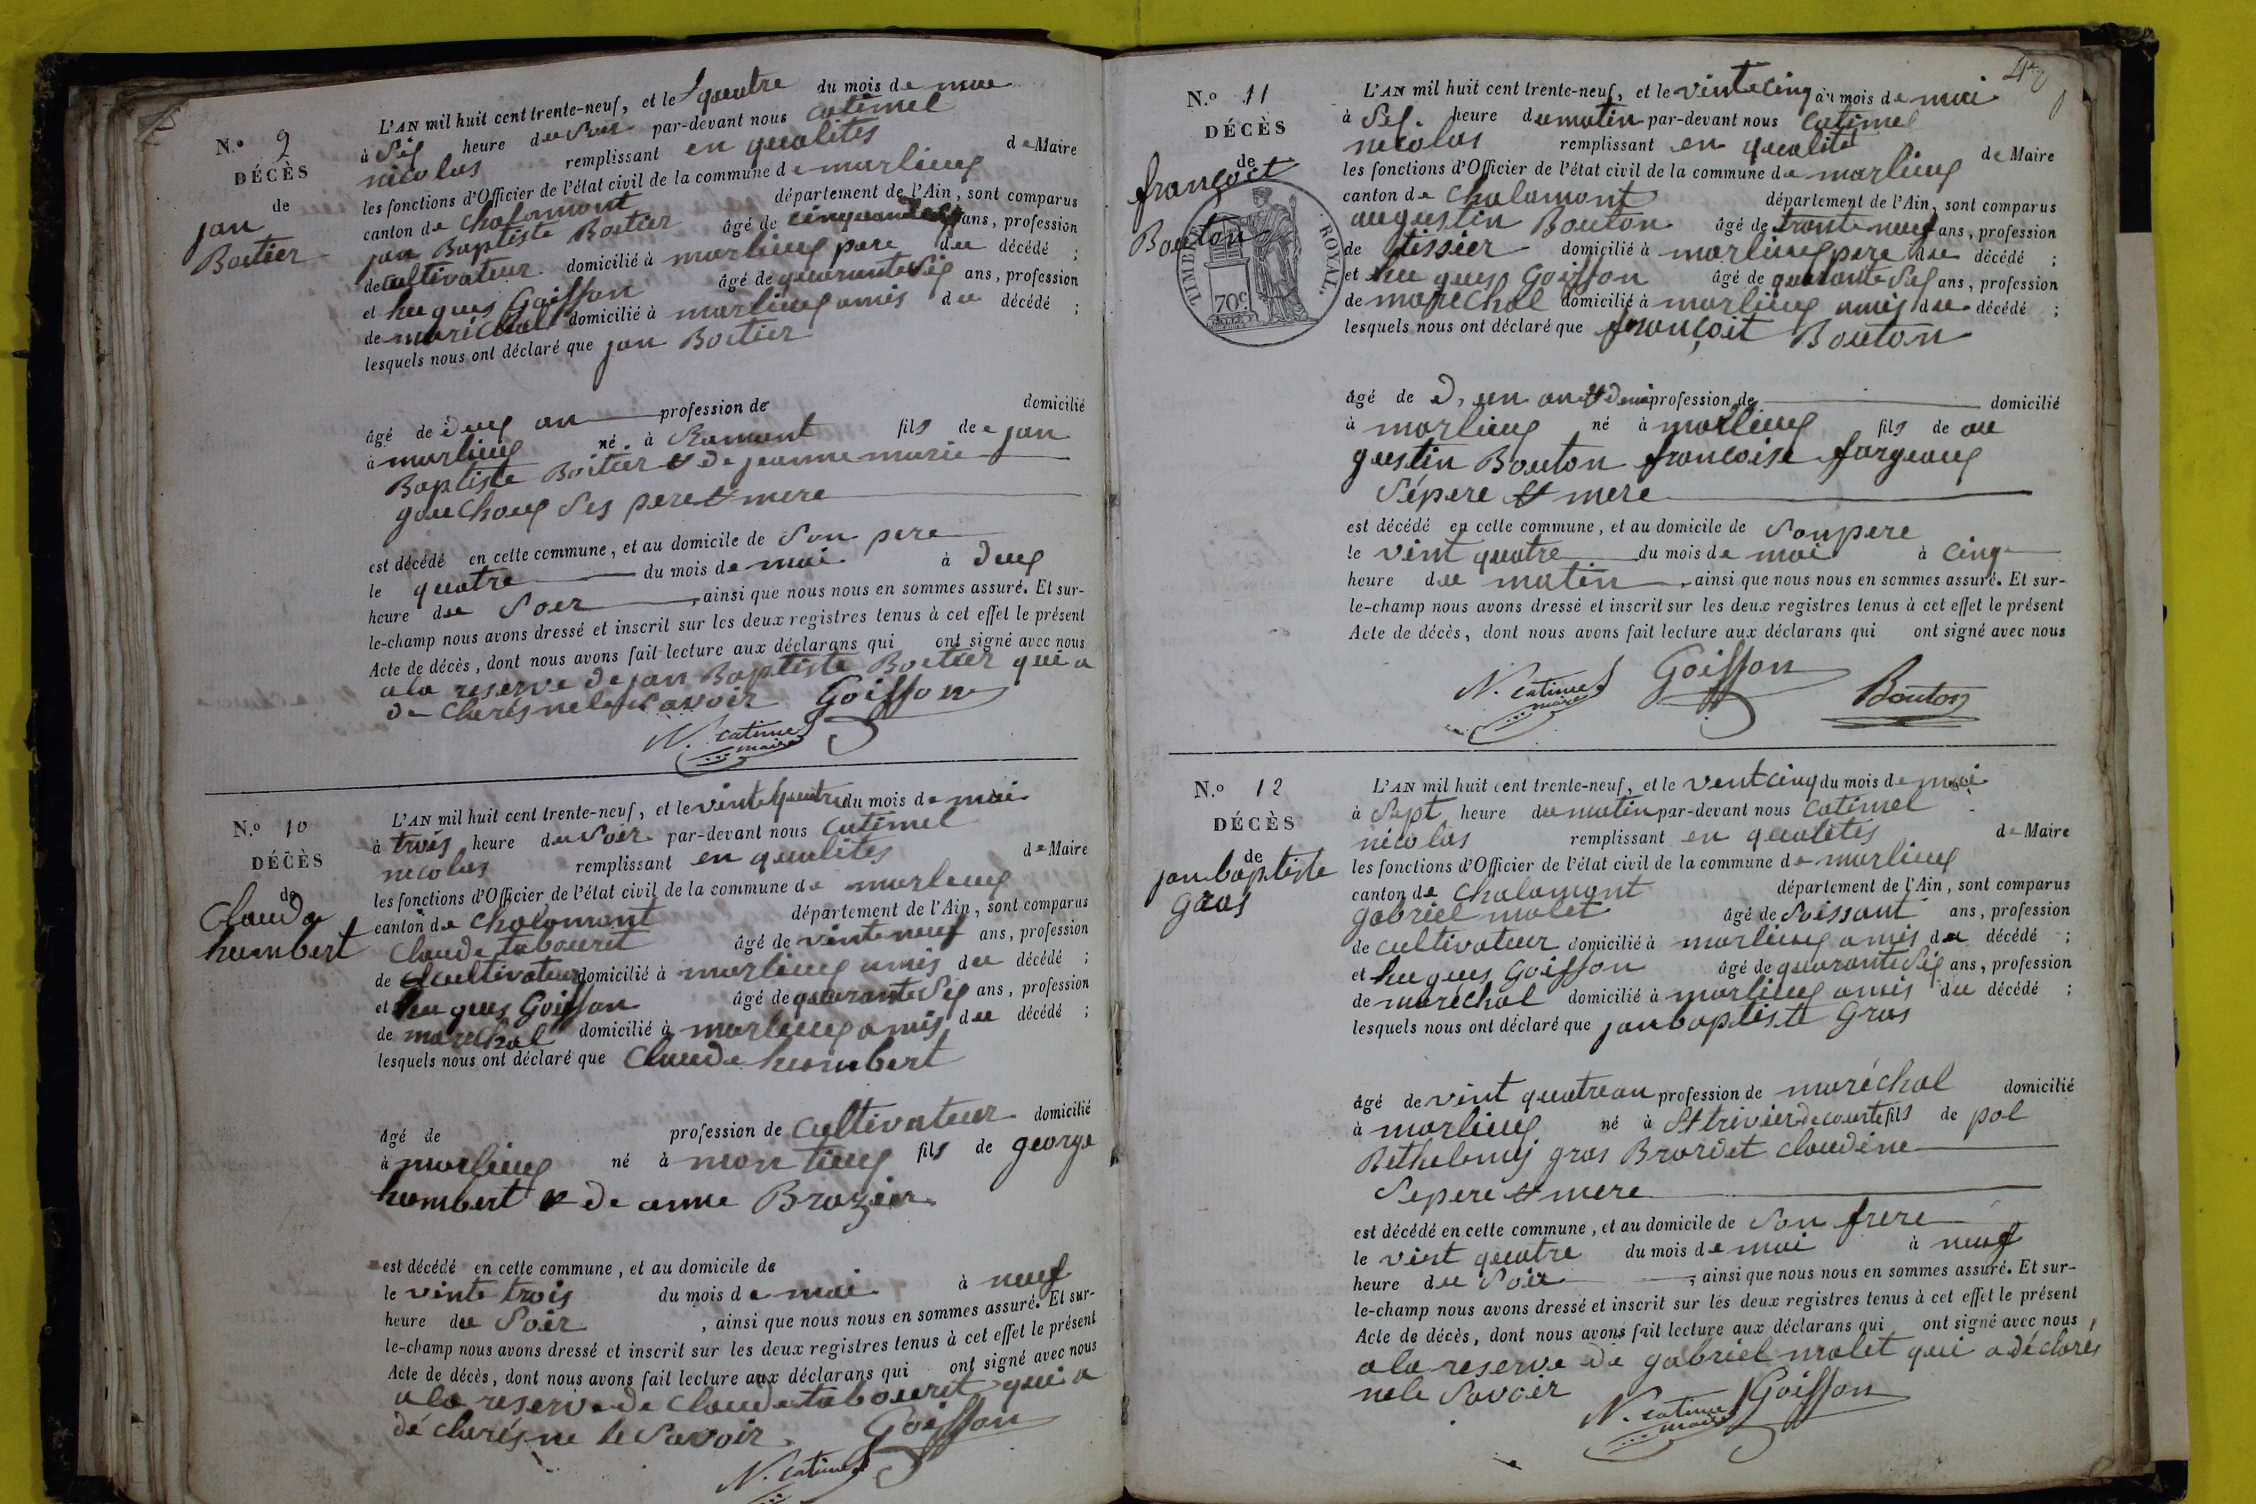 N.o 9
DÉCÈS
de
jan
Boitier
L'AN mil huit cent trente-neuf, et le quatre du mois de mai
à Sis heure du Soir par-devant nous catimel
nicolas remplissant en qualités de Maire
les fonctions d'Officier de l'état civil de la commune de marlieug
canton de Chalamont département de l'Ain, sont comparus
jan Baptiste Boitier âgé de ans, profession
de cultivateur domicilié à marlieug pere du décédé ;
et hugues Goiffon âgé de quarante Sig ans, profession
de maréchal domicilié à marlieug amis du décédé ;
lesquels nous ont déclaré que jan Boitier
âgé de deug an profession de domicilié
à marlieug né à Ramant fils de jan
Baptiste Boitier & de jeanne marie
gauchoug Ses pere & mere
est décédé en cette commune, et au domicile de Son pere
le quatre du mois de mai à deug
heure du Soer, ainsi que nous nous en sommes assuré. Et sur-
le-champ nous avons dressé et inscrit sur les deux registres tenus à cet effet le présent
Acte de décès, dont nous avons fait lecture aux déclarans qui ont signé avec nous
a la reserve de jan Baptiste Boitier qui a
de cheres ne le Savoir Goiffon
N. catimel
maire
N.o 10
DÉCÈS
de
Claude
humbert
L'AN mil huit cent trente-neuf, et le vinte quatre du mois de mai
à trois heure du Soir par-devant nous Catimel
nicolas remplissant en qualités de Maire
les fonctions d'Officier de l'état civil de la commune de marlieug
canton de Chalamont département de l'Ain, sont comparus
Claude tabouret âgé de vinte neuf ans, profession
de cultivateur domicilié à marlieug amis du décédé ;
et hugues Goiffon âgé de quarante Sig ans, profession
de maréchal domicilié à marlieug amis du décédé ;
lesquels nous ont déclaré que Claude humbert
âgé de profession de cultivateur domicilié
à marlieug né à montieug fils de george
humbert & de anne Brazier
est décédé en cette commune, et au domicile de
le vinte trois du mois de mai à neuf
heure du Soir, ainsi que nous nous en sommes assuré. Et sur-
le-champ nous avons dressé et inscrit sur les deux registres tenus à cet effet le présent
Acte de décès, dont nous avons fait lecture aux déclarans qui ont signé avec nous
a la reserve de Claude tabouret qui a
dé cherés ne le Savoir. Goiffon
N. catimel
N.o 11
DÉCÈS
de
françoit
Bouton
TIMBRE ROYAL.
70c
L'AN mil huit cent trente-neuf, et le vinte cinq du mois de mai
à Sig. heure du matin par-devant nous catimel
nicolas remplissant en qualité de Maire
les fonctions d'Officier de l'état civil de la commune de marlieug
canton de Chalamont département de l'Ain, sont comparus
augustin Bouton âgé de trente neuf ans, profession
de tissier domicilié à marlieug pere du décédé ;
et hugues Goiffon âgé de quarante Sig ans, profession
de maréchal domicilié à marlieug amis du décédé ;
lesquels nous ont déclaré que françoit Bouton
âgé de d, un an & demi profession de domicilié
à marlieug né à marlieug fils de au
gustin Bouton francoise fargeaug
Sépere & mere
est décédé en cette commune, et au domicile de Sonpere
le vint quatre du mois de mai à cinq
heure du matin, ainsi que nous nous en sommes assuré. Et sur-
le-champ nous avons dressé et inscrit sur les deux registres tenus à cet effet le présent
Acte de décès, dont nous avons fait lecture aux déclarans qui ont signé avec nous
N. catimel Goiffon
maire Bouton
N.o 12
DÉCÈS
de
jan baptiste
gros
L'AN mil huit cent trente-neuf, et le vent cinq du mois de mai
à Sept heure du matin par-devant nous catimel
nicolas remplissant en qualités de Maire
les fonctions d'Officier de l'état civil de la commune de marlieug
canton de Chalamont département de l'Ain, sont comparus
gabriel malet âgé de Soissant ans, profession
de cultivateur domicilié à marlieug amis du décédé ;
et hugues Goiffon âgé de quarante Sig ans, profession
de maréchal domicilié à marlieug amis du décédé ;
lesquels nous ont déclaré que jan baptiste Gros
âgé de vint quatre an profession de maréchal domicilié
à marlieug né à St trivier de courte fils de pol
Bethelemij gros Brordet claudine
Sepere & mere
est décédé en cette commune, et au domicile de Son frere
le vint quatre du mois de mai à neuf
heure du Soir, ainsi que nous nous en sommes assuré. Et sur-
le-champ nous avons dressé et inscrit sur les deux registres tenus à cet effet le présent
Acte de décès, dont nous avons fait lecture aux déclarans qui ont signé avec nous,
a la reserve de gabriel malet qui a déclares
nele Savoir
N. catimel Goiffon
maire